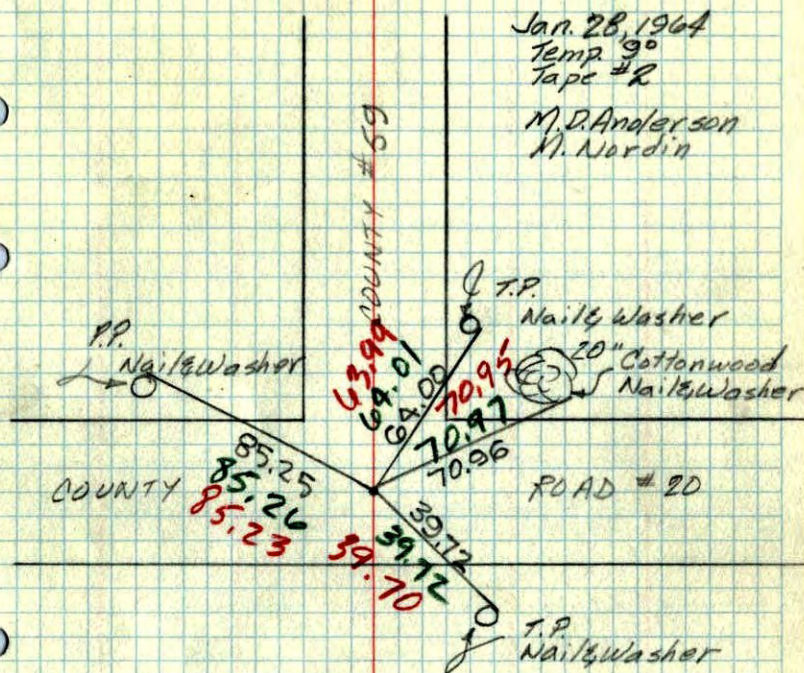 Jan. 28, 1964
Temp. 9°
Tape #2
M.D. Anderson
M. Nordin
COUNTY #59
T.P.
Nail & Washer
P.P.
Nail & Washer
20" Cottonwood
Nail & Washer
63.99
64.01
64.00
70.95
70.97
70.96
85.25
85.26
85.23
COUNTY ROAD #20
39.72
39.72
39.70
T.P.
Nail & Washer